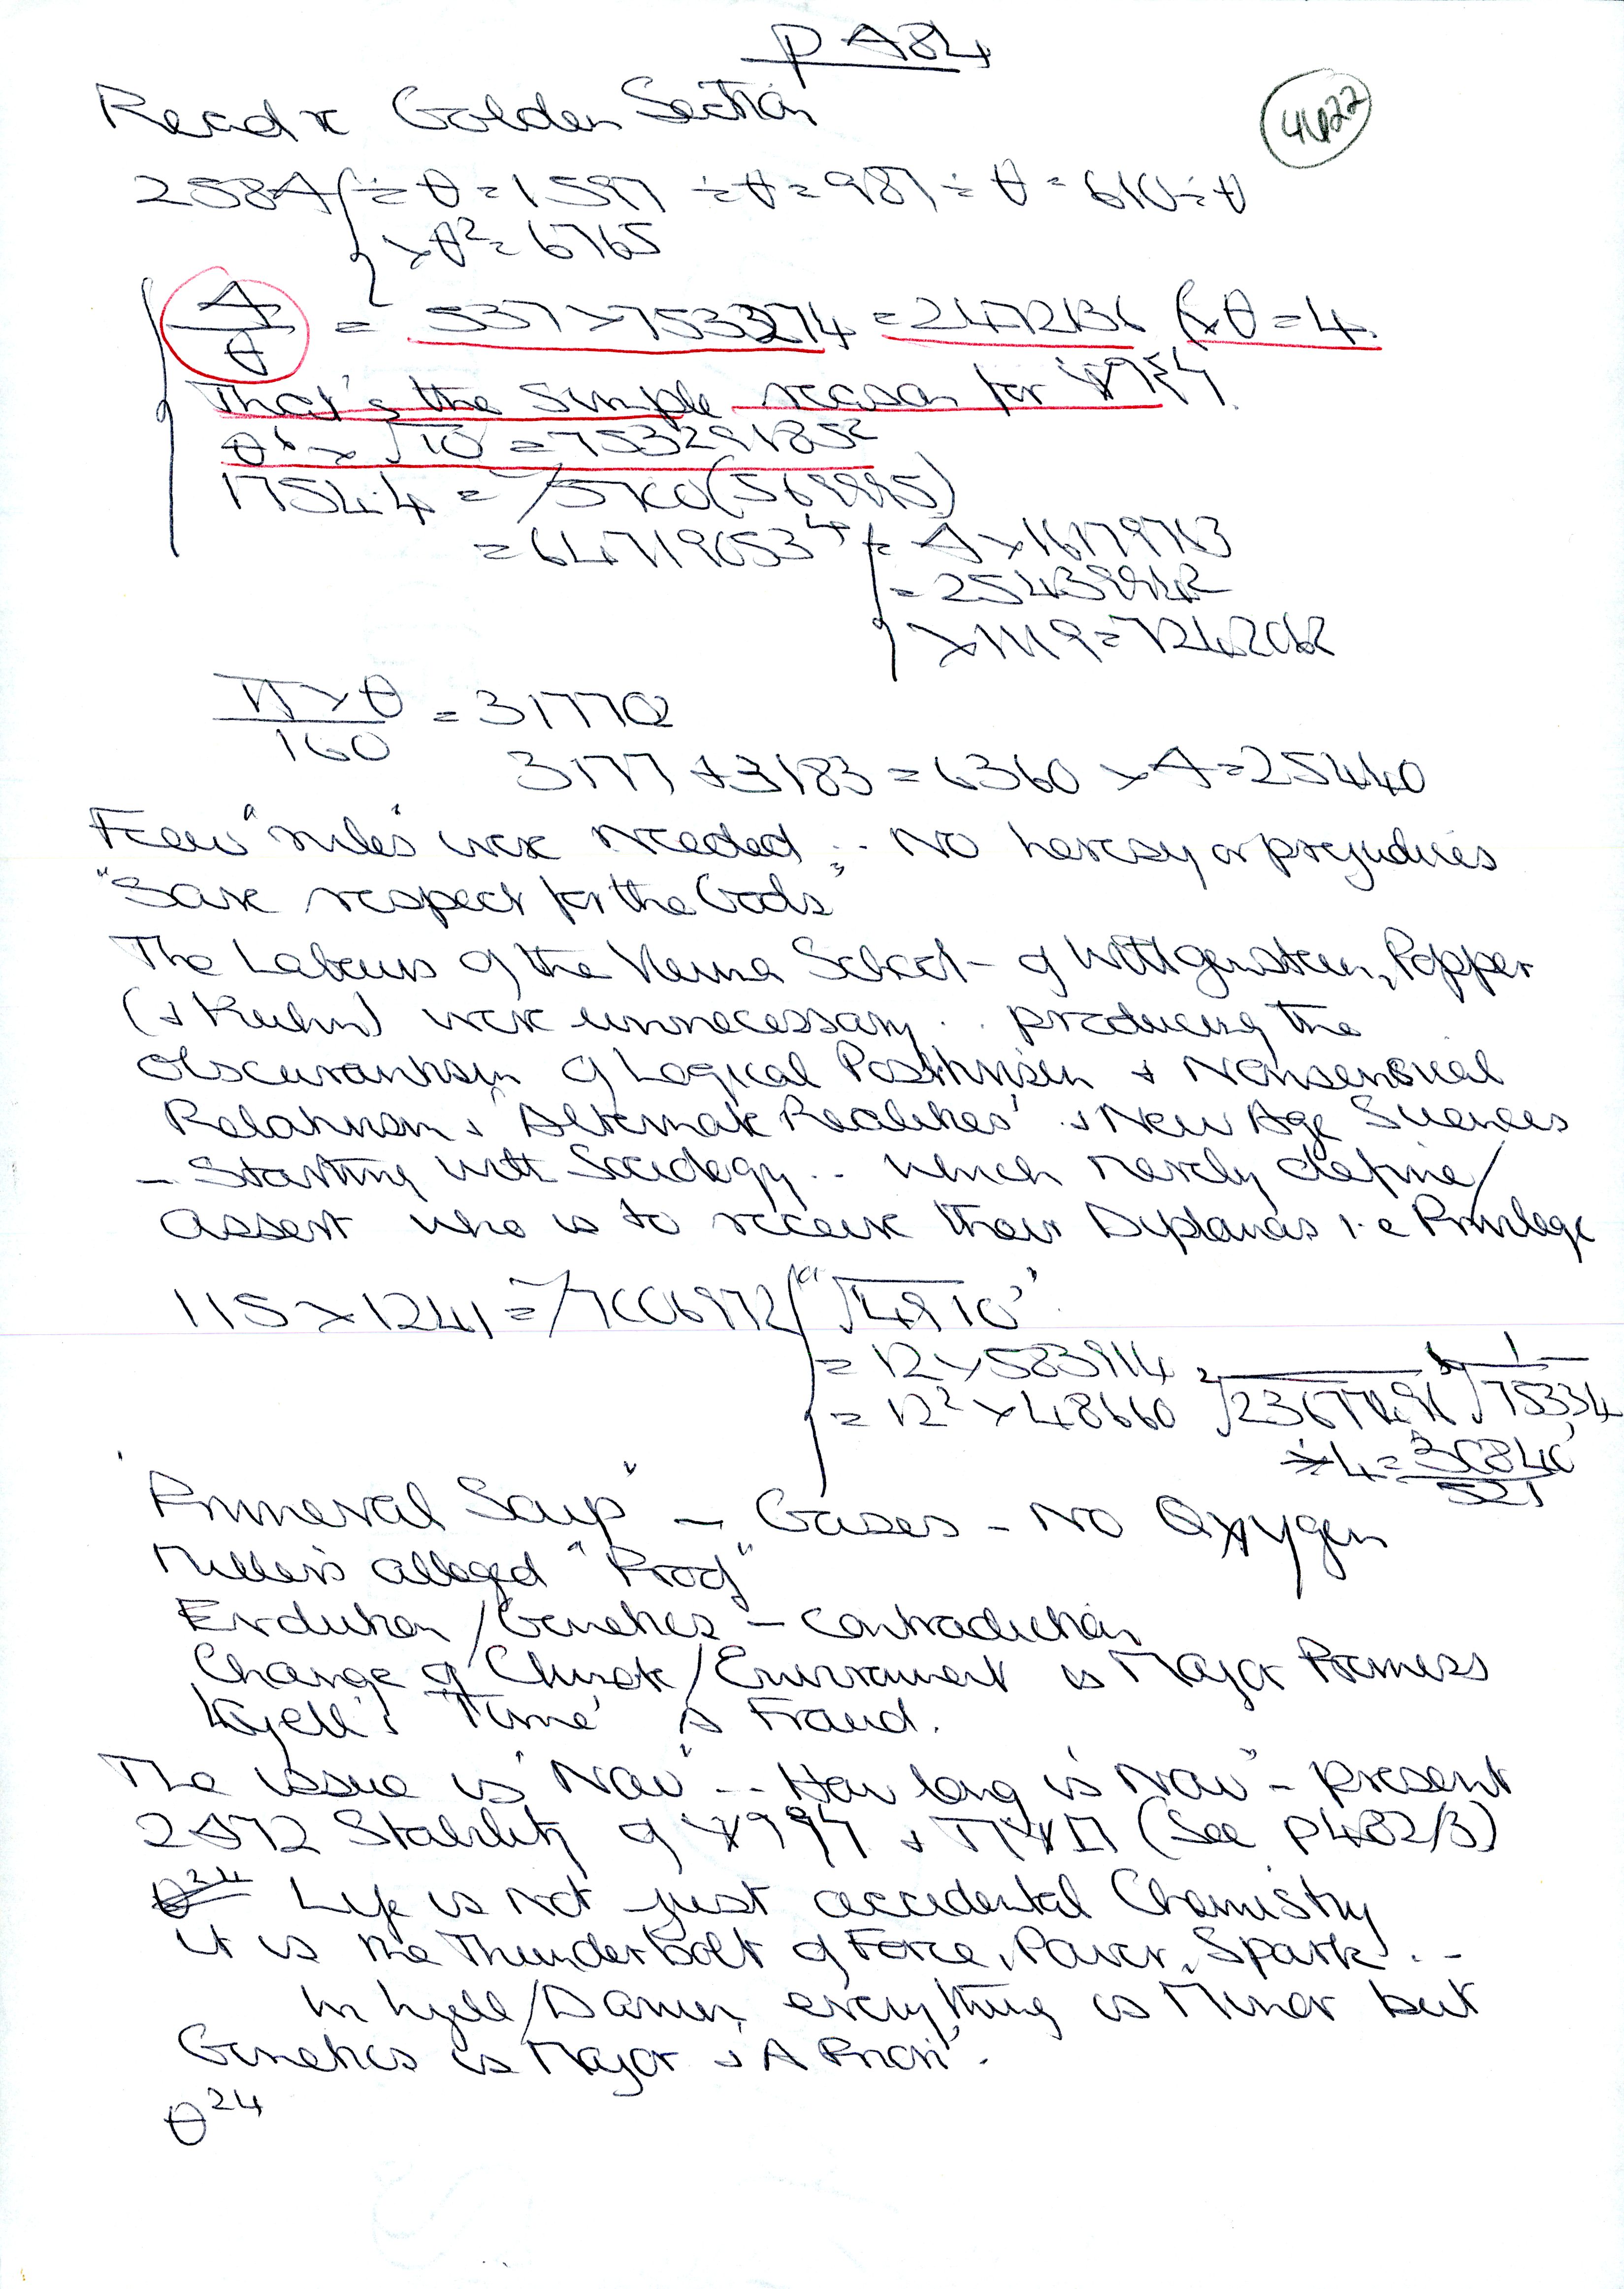 p A84
4622
Read x Golden Section
2584 ÷ θ = 1597 ÷ θ = 987 ÷ θ = 610 ÷ θ
× θ² = 6765
4/θ = 537 × 753374 = 2472136 (× θ = 4.
That's the simple reason for
θ⁶ × √10 = 753291852
1754.4 =
= 647190534 ÷ 4 × 16179763
= 25439942
× 1119 = 724206
π × θ / 160 = 317702
3177 + 3183 = 6360 × 4 = 25440
Few "rules" were needed ; .. No heresy or prejudices
"Save respect for the Gods"
The Labours of the Vienna School - of Wittgenstein, Popper
(+ Kuhn) were unnecessary .. producing the
obscurantism of Logical Positivism + Nonsensical
Relativism + 'Alternate Realities' + New Age Sciences
- Starting with Sociology .. which merely define/
assert who is to receive their Diplomas i.e Privilege
115 × 1241 = 7006972 "√4910"
= 12 × 583914
= 12² × 48660
Primeval Soup" - Gases - No Oxygen
Miller's alleged "Proof"
Evolution / Genetics - contradiction
Change of Climate / Environment is Major Premiss
Lyell's 'Time' is Fraud.
The issue is "Now" .. How long is "Now" - present
2472 Stability of (See p482/3)
θ²⁴ Life is not just accidental Chemistry
it is the Thunderbolt of Force, Power, Spark . -
In Lyell / Darwin everything is Minor but
Genetics is Major + 'A Priori'.
θ²⁴